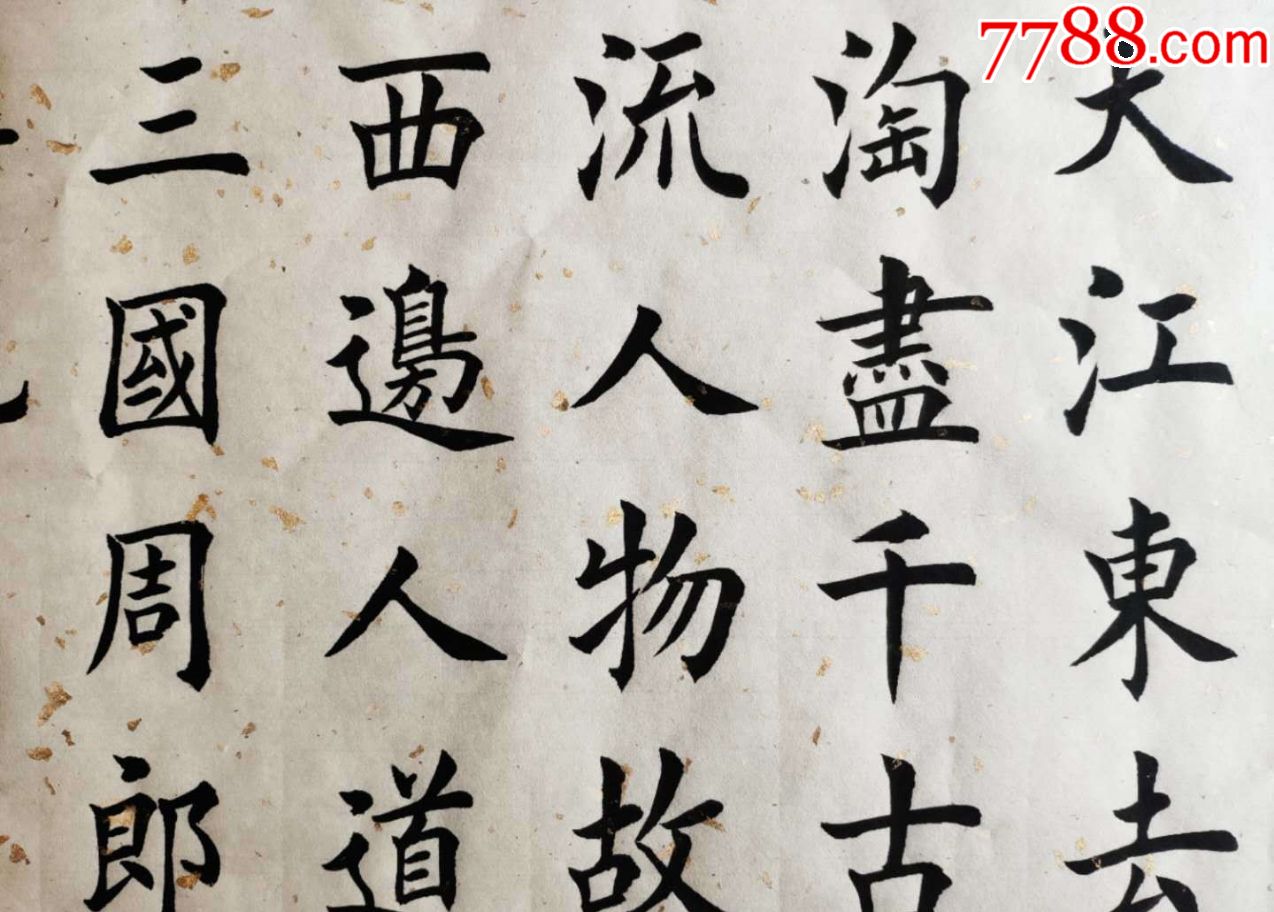 7788.com
大江東去
淘盡千古
流人物故
西邊人道
三國周郎